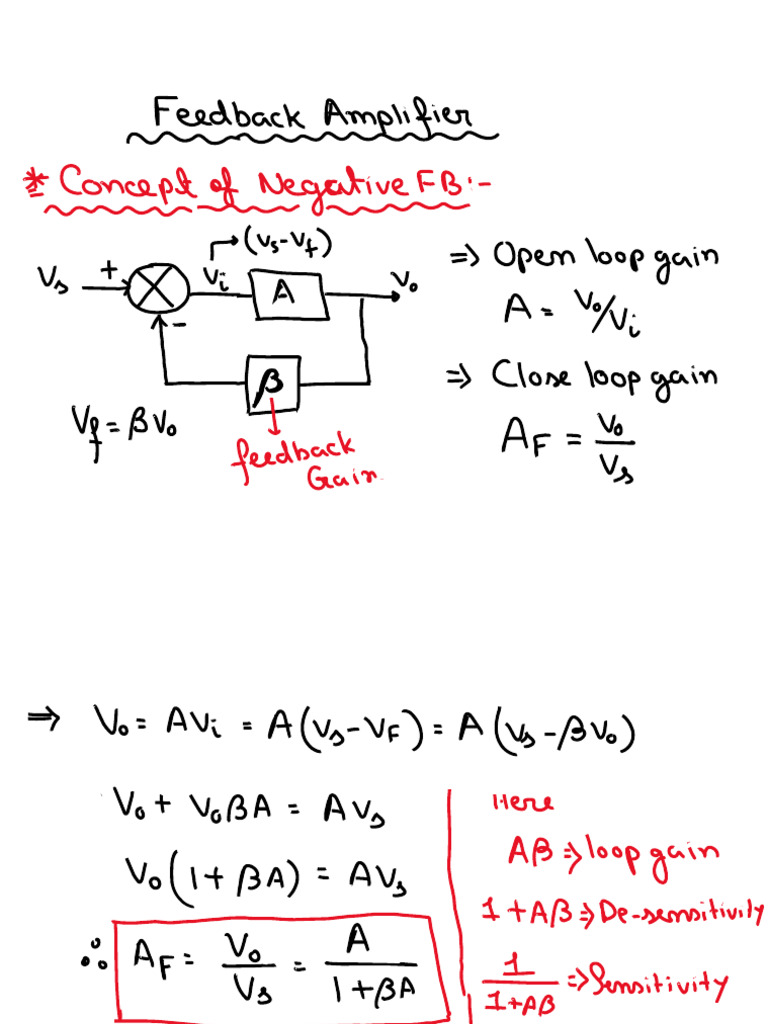 Feedback Amplifier
* Concept of Negative FB:-
(Vs-Vf)
Vs + Vi A Vo
-
β
Vf = βVo
feedback
Gain
⇒ Open loop gain
A = Vo/Vi
⇒ Close loop gain
AF = Vo/Vs
⇒ Vo = AVi = A(Vs-VF) = A(Vs-βVo)
Vo + VoβA = AVs
Vo(1+βA) = AVs
∴ AF = Vo/Vs = A/1+βA
Here
Aβ ⇒ loop gain
1+Aβ ⇒ De-sensitivity
1/1+Aβ ⇒ Sensitivity